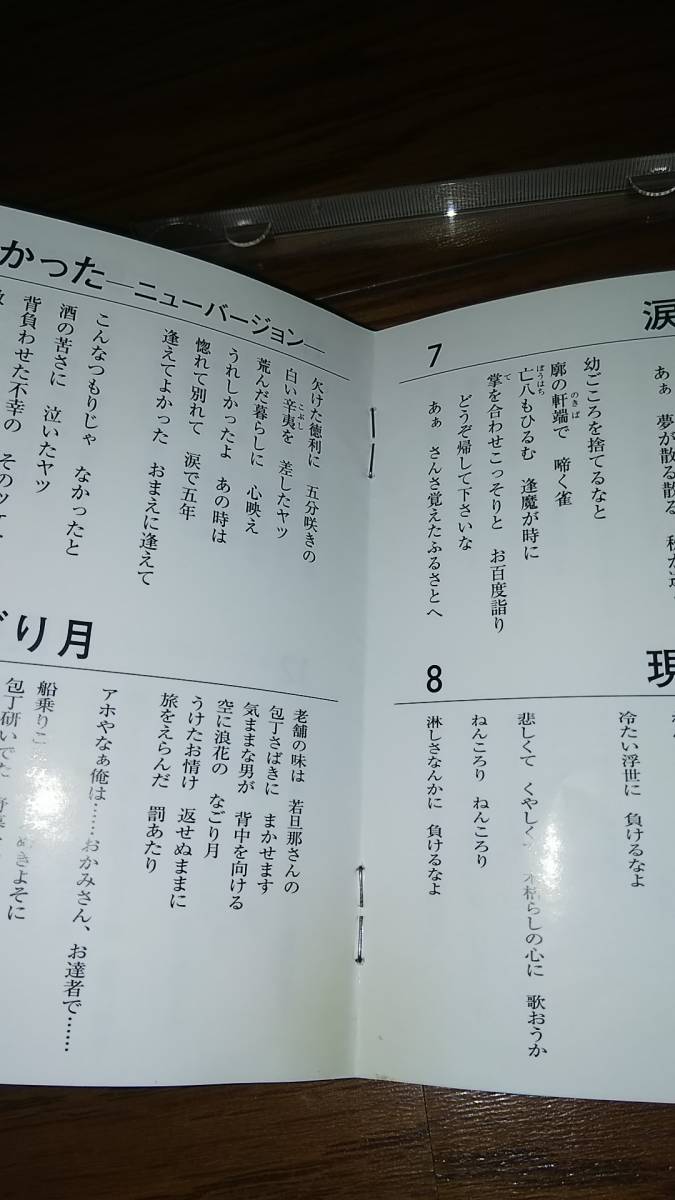 涙
7
あぁ 夢が散る散る
幼ごころを捨てるなと
廓の軒端で 啼く雀
のきば
亡八もひるむ 逢魔が時に
ぼうはち
掌を合わせこっそりと お百度詣り
て
どうぞ帰して下さいな
あぁ さんさ覚えたふるさとへ
現
8
冷たい浮世に 負けるなよ
悲しくて くやしく
らしの心に 歌おうか
ねんころり ねんころり
淋しさなんかに 負けるなよ
かった―ニューバージョン―
欠けた徳利に 五分咲きの
白い辛夷を 差したヤツ
こぶし
荒んだ暮らしに 心映え
うれしかったよ あの時は
惚れて別れて 涙で五年
逢えてよかった おまえに逢えて
こんなつもりじゃ なかったと
酒の苦さに 泣いたヤツ
背負わせた不幸の そのツケ
ごり月
老舗の味は 若旦那さんの
包丁さばきに まかせます
気ままな男が 背中を向ける
空に浪花の なごり月
うけたお情け 返せぬままに
旅をえらんだ 罰あたり
アホやなぁ俺は……おかみさん、お達者で……
船乗りこ
めきよそに
包丁研いでた